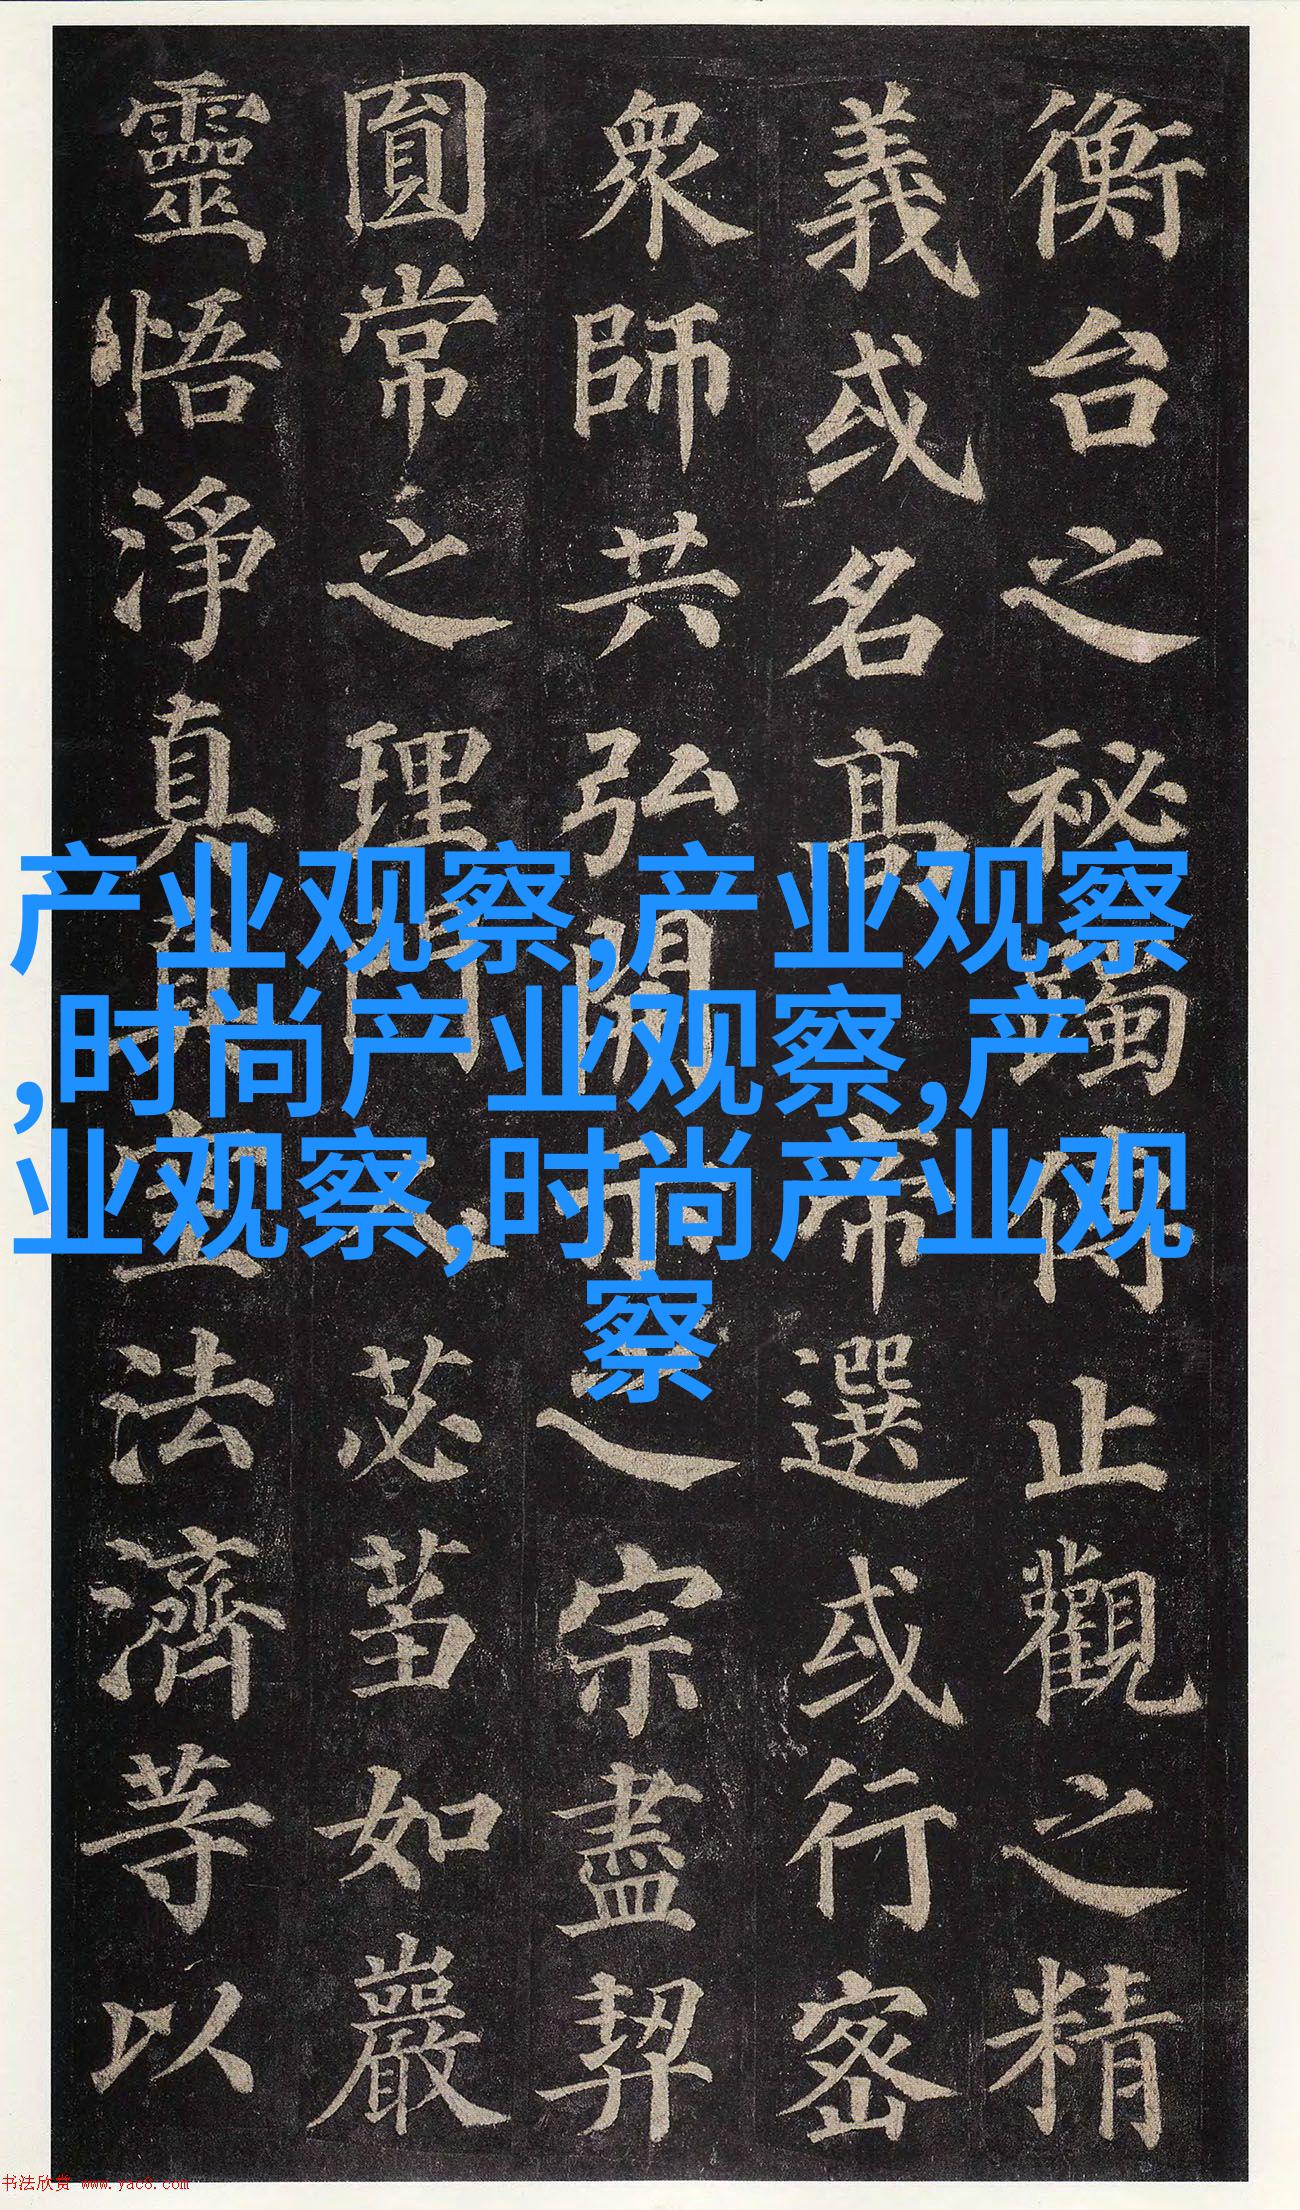 衡台之秘躅傳止觀之精
義或名高帝選或行密
衆師共弘開示之宗盡契
圓常之理門人苾蒭如巖
靈悟淨真真空法濟等以
产业观察,产业观察
,时尚产业观察,产
业观察,时尚产业观
察
书法欣赏 www.yac8.com